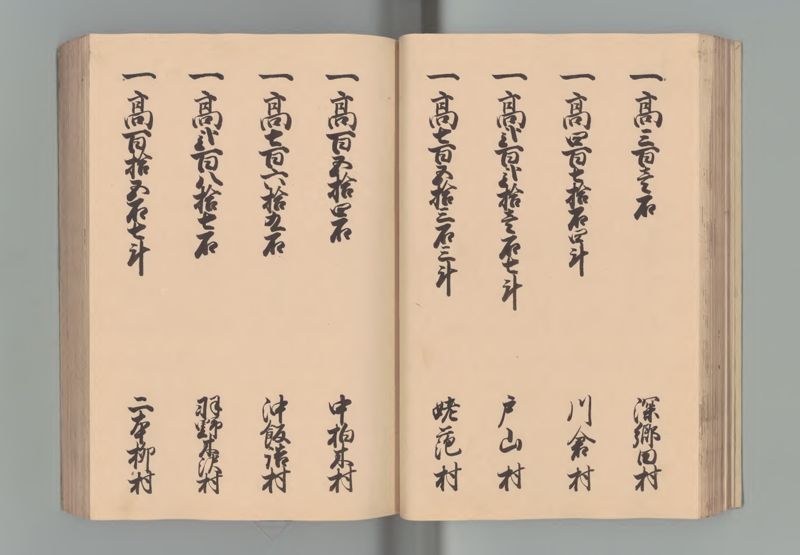 一 高三百壱石 深郷田村
一 高四百七拾石四斗 川倉村
一 高弐百弐拾壱石七斗 戸山村
一 高七百五拾三石三斗 姥萢村
一 高百五拾四石 中柏木村
一 高七百六拾五石 沖飯詰村
一 高弐百八拾七石 羽野木沢村
一 高百拾五石七斗 二本柳村